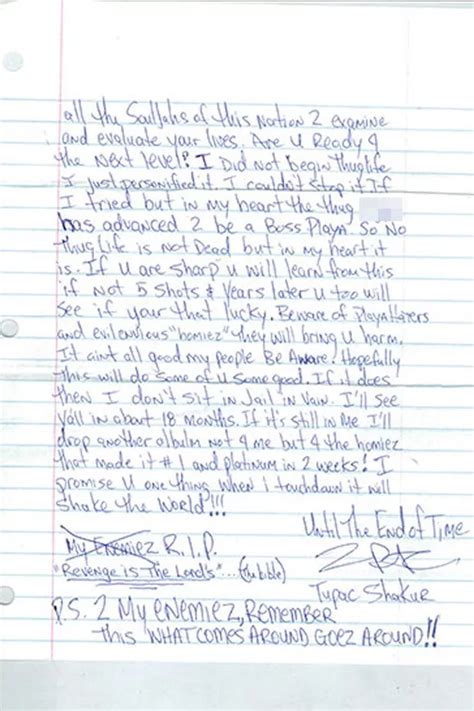 all the Souljahs of this Nation 2 examine
and evaluate your lives. Are U Ready 4
the Next level? I Did not begin thuglife
I just personified it. I couldn't stop it If
I tried but in my heart the thug
has advanced 2 be a Boss Playa. So No
Thug Life is not Dead but in my heart it
is. If U are sharp U will learn from this
if Not 5 shots & Years later U too will
see if your that lucky. Beware of Playa Haters
and evil envious "homiez" they will bring U harm.
It aint all good my people Be Aware. Hopefully
this will do some of U some good. If it does
then I don't sit in Jail in Vain. I'll see
Ya'll in about 18 months. If it's still in me I'll
drop another albulm not 4 me but 4 the homiez
that made it #1 and platinum in 2 weeks! I
promise U one thing when I touchdown it will
shake the World!!!
Until The End of Time
My Enemiez R.I.P.
"Revenge is The Lord's"... (the bible)
Tupac Shakur
P.S. 2 My enemiez, Remember
this WHAT COMES AROUND GOEZ AROUND!!